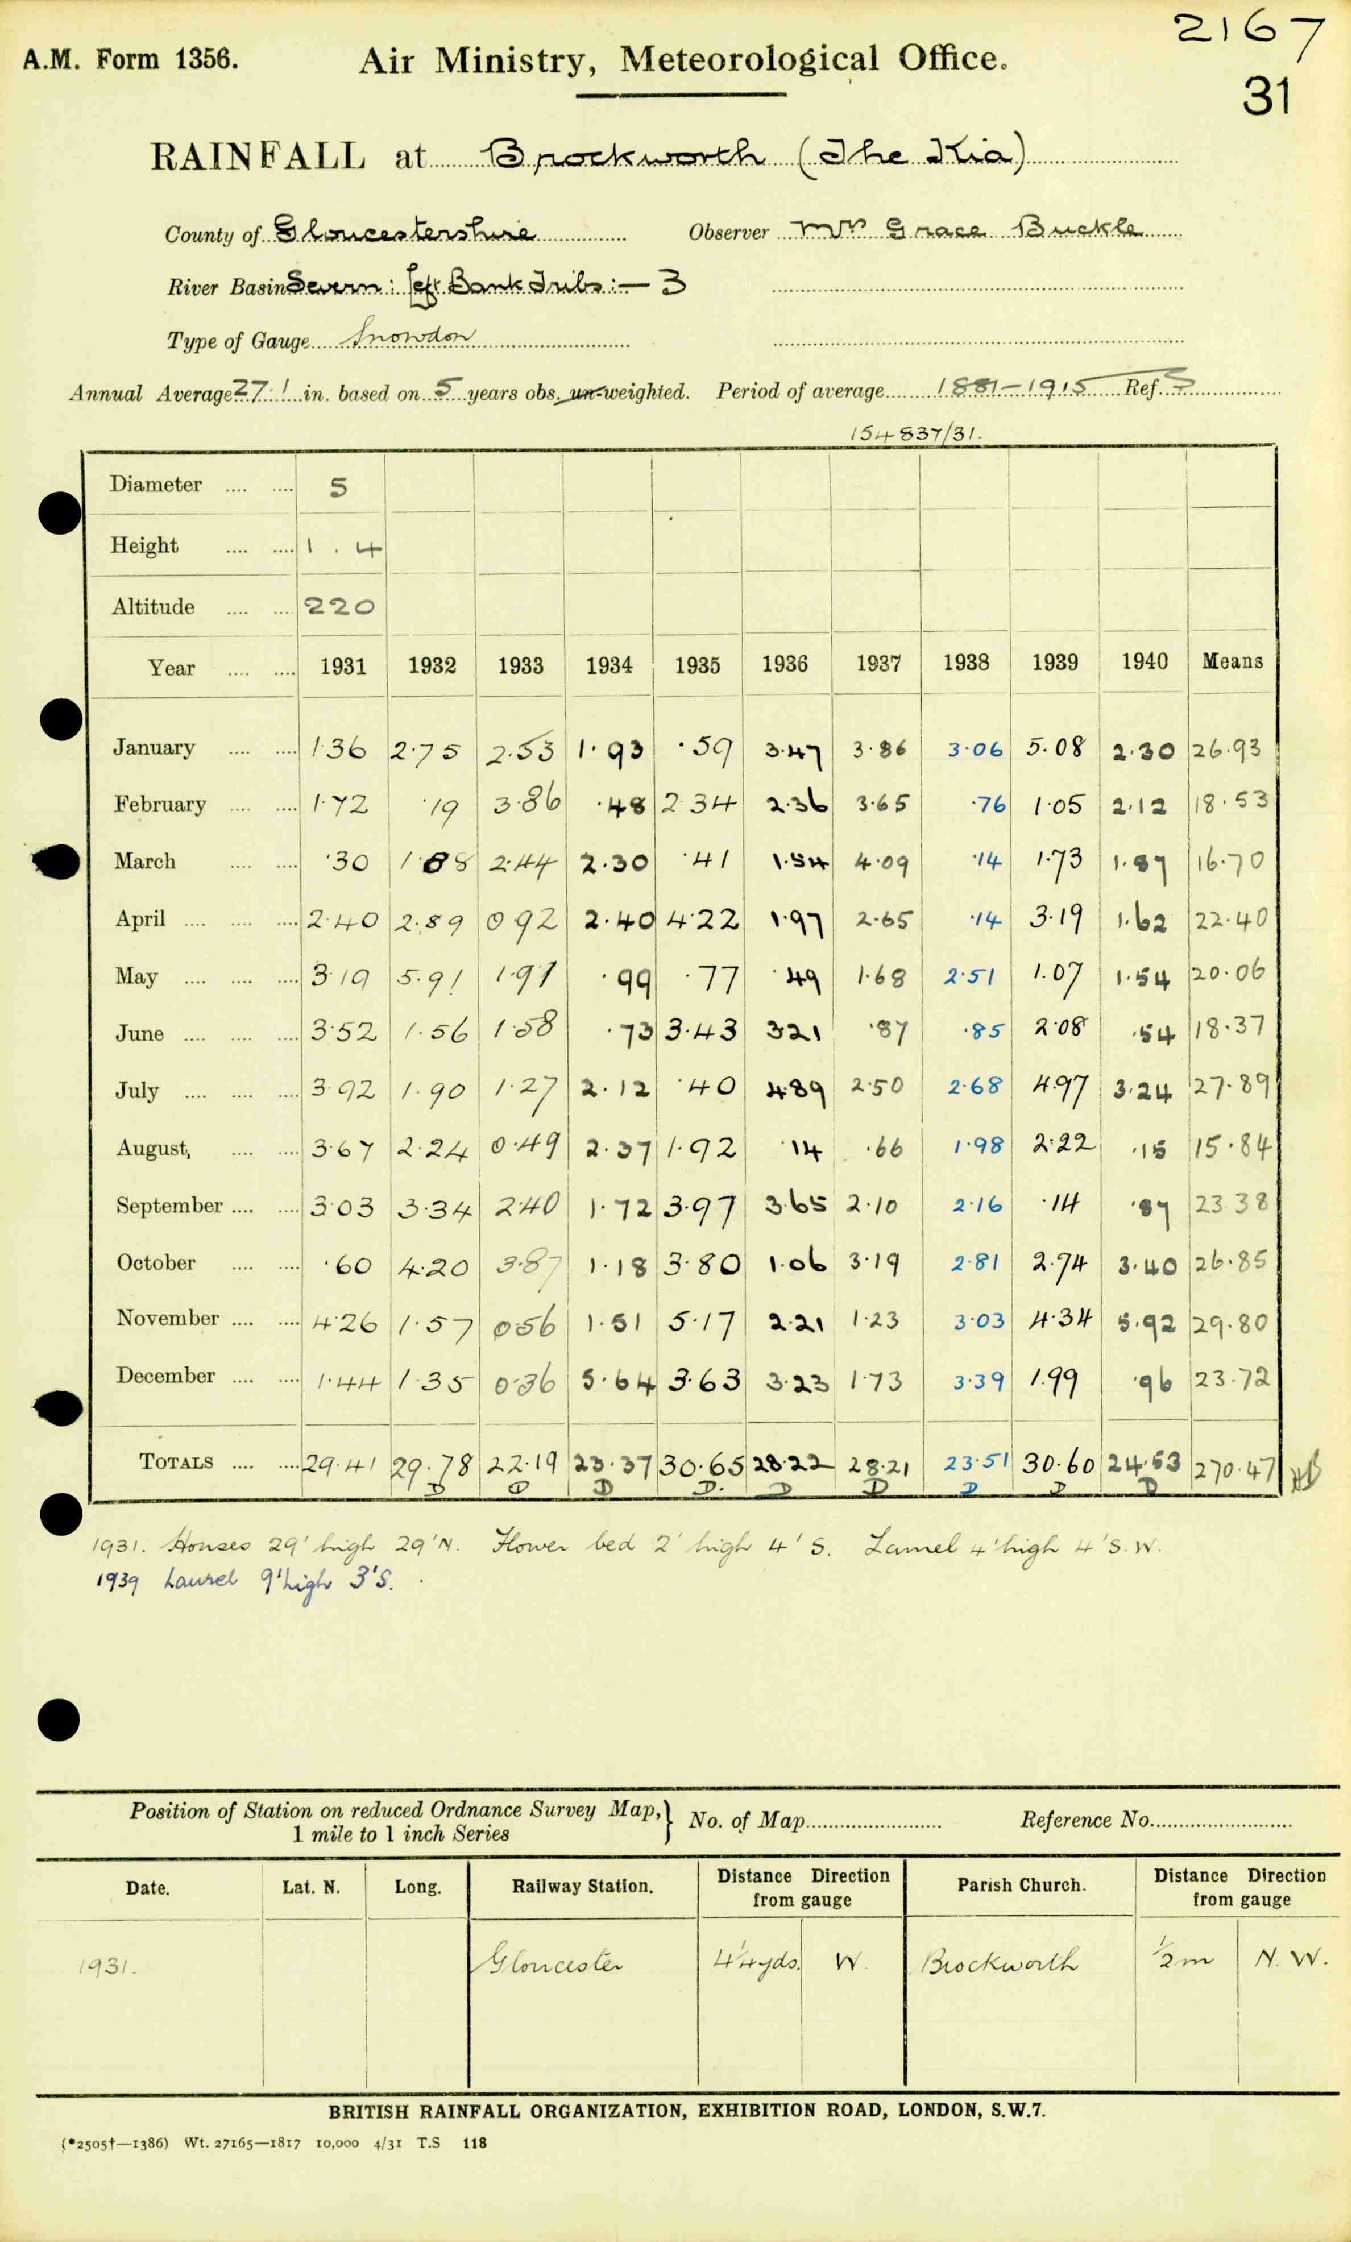 2167
A.M. Form 1356. Air Ministry, Meteorological Office.
31
RAINFALL at Brockworth (The Kia)
County of Gloucestershire Observer Mrs Grace Buckle
River Basin Severn: Left Bank Tribs:— 3
Type of Gauge Snowdon
Annual Average 27.1 in. based on 5 years obs. un-weighted. Period of average 1881-1915 Ref. S
154837/31.
Diameter 5
Height 1 . 4
Altitude 220
Year 1931 1932 1933 1934 1935 1936 1937 1938 1939 1940 Means
January 1.36 2.75 2.53 1.93 .59 3.47 3.86 3.06 5.08 2.30 26.93
February 1.72 .19 3.86 .48 2.34 2.36 3.65 .76 1.05 2.12 18.53
March .30 1.88 2.44 2.30 .41 1.54 4.09 .14 1.73 1.87 16.70
April 2.40 2.89 0.92 2.40 4.22 1.97 2.65 .14 3.19 1.62 22.40
May 3.19 5.91 1.91 .99 .77 .49 1.68 2.51 1.07 1.54 20.06
June 3.52 1.56 1.58 .73 3.43 3.21 .87 .85 2.08 .54 18.37
July 3.92 1.90 1.27 2.12 .40 4.89 2.50 2.68 4.97 3.24 27.89
August 3.67 2.24 0.49 2.37 1.92 .14 .66 1.98 2.22 .15 15.84
September 3.03 3.34 2.40 1.72 3.97 3.65 2.10 2.16 .14 .87 23.38
October .60 4.20 3.87 1.18 3.80 1.06 3.19 2.81 2.74 3.40 26.85
November 4.26 1.57 0.56 1.51 5.17 2.21 1.23 3.03 4.34 5.92 29.80
December 1.44 1.35 0.36 5.64 3.63 3.23 1.73 3.39 1.99 .96 23.72
TOTALS 29.41 29.78 22.19 23.37 30.65 28.22 28.21 23.51 30.60 24.53 270.47
D D D D. D D D D D
1931. Houses 29' high 29' N. Flower bed 2' high 4' S. Laurel 4' high 4' S.W.
1939 Laurel 9' high 3' S.
Position of Station on reduced Ordnance Survey Map, } No. of Map Reference No.
1 mile to 1 inch Series
Date. Lat. N. Long. Railway Station. Distance Direction from gauge Parish Church. Distance Direction from gauge
1931. Gloucester 4¼yds. W. Brockworth ½m N.W.
BRITISH RAINFALL ORGANIZATION, EXHIBITION ROAD, LONDON, S.W.7.
(*2505†—1386) Wt. 27165—1817 10,000 4/31 T.S 118